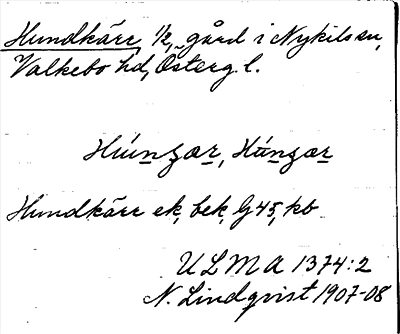 Hundkärr, 1/2, gård i Nykils sn,
Valkebo hd, Österg. l.
Húnzar, Húnzar
Hundkärr ek, bek, G45, kb
ULMA 1374:2
N. Lindqvist 1907-08